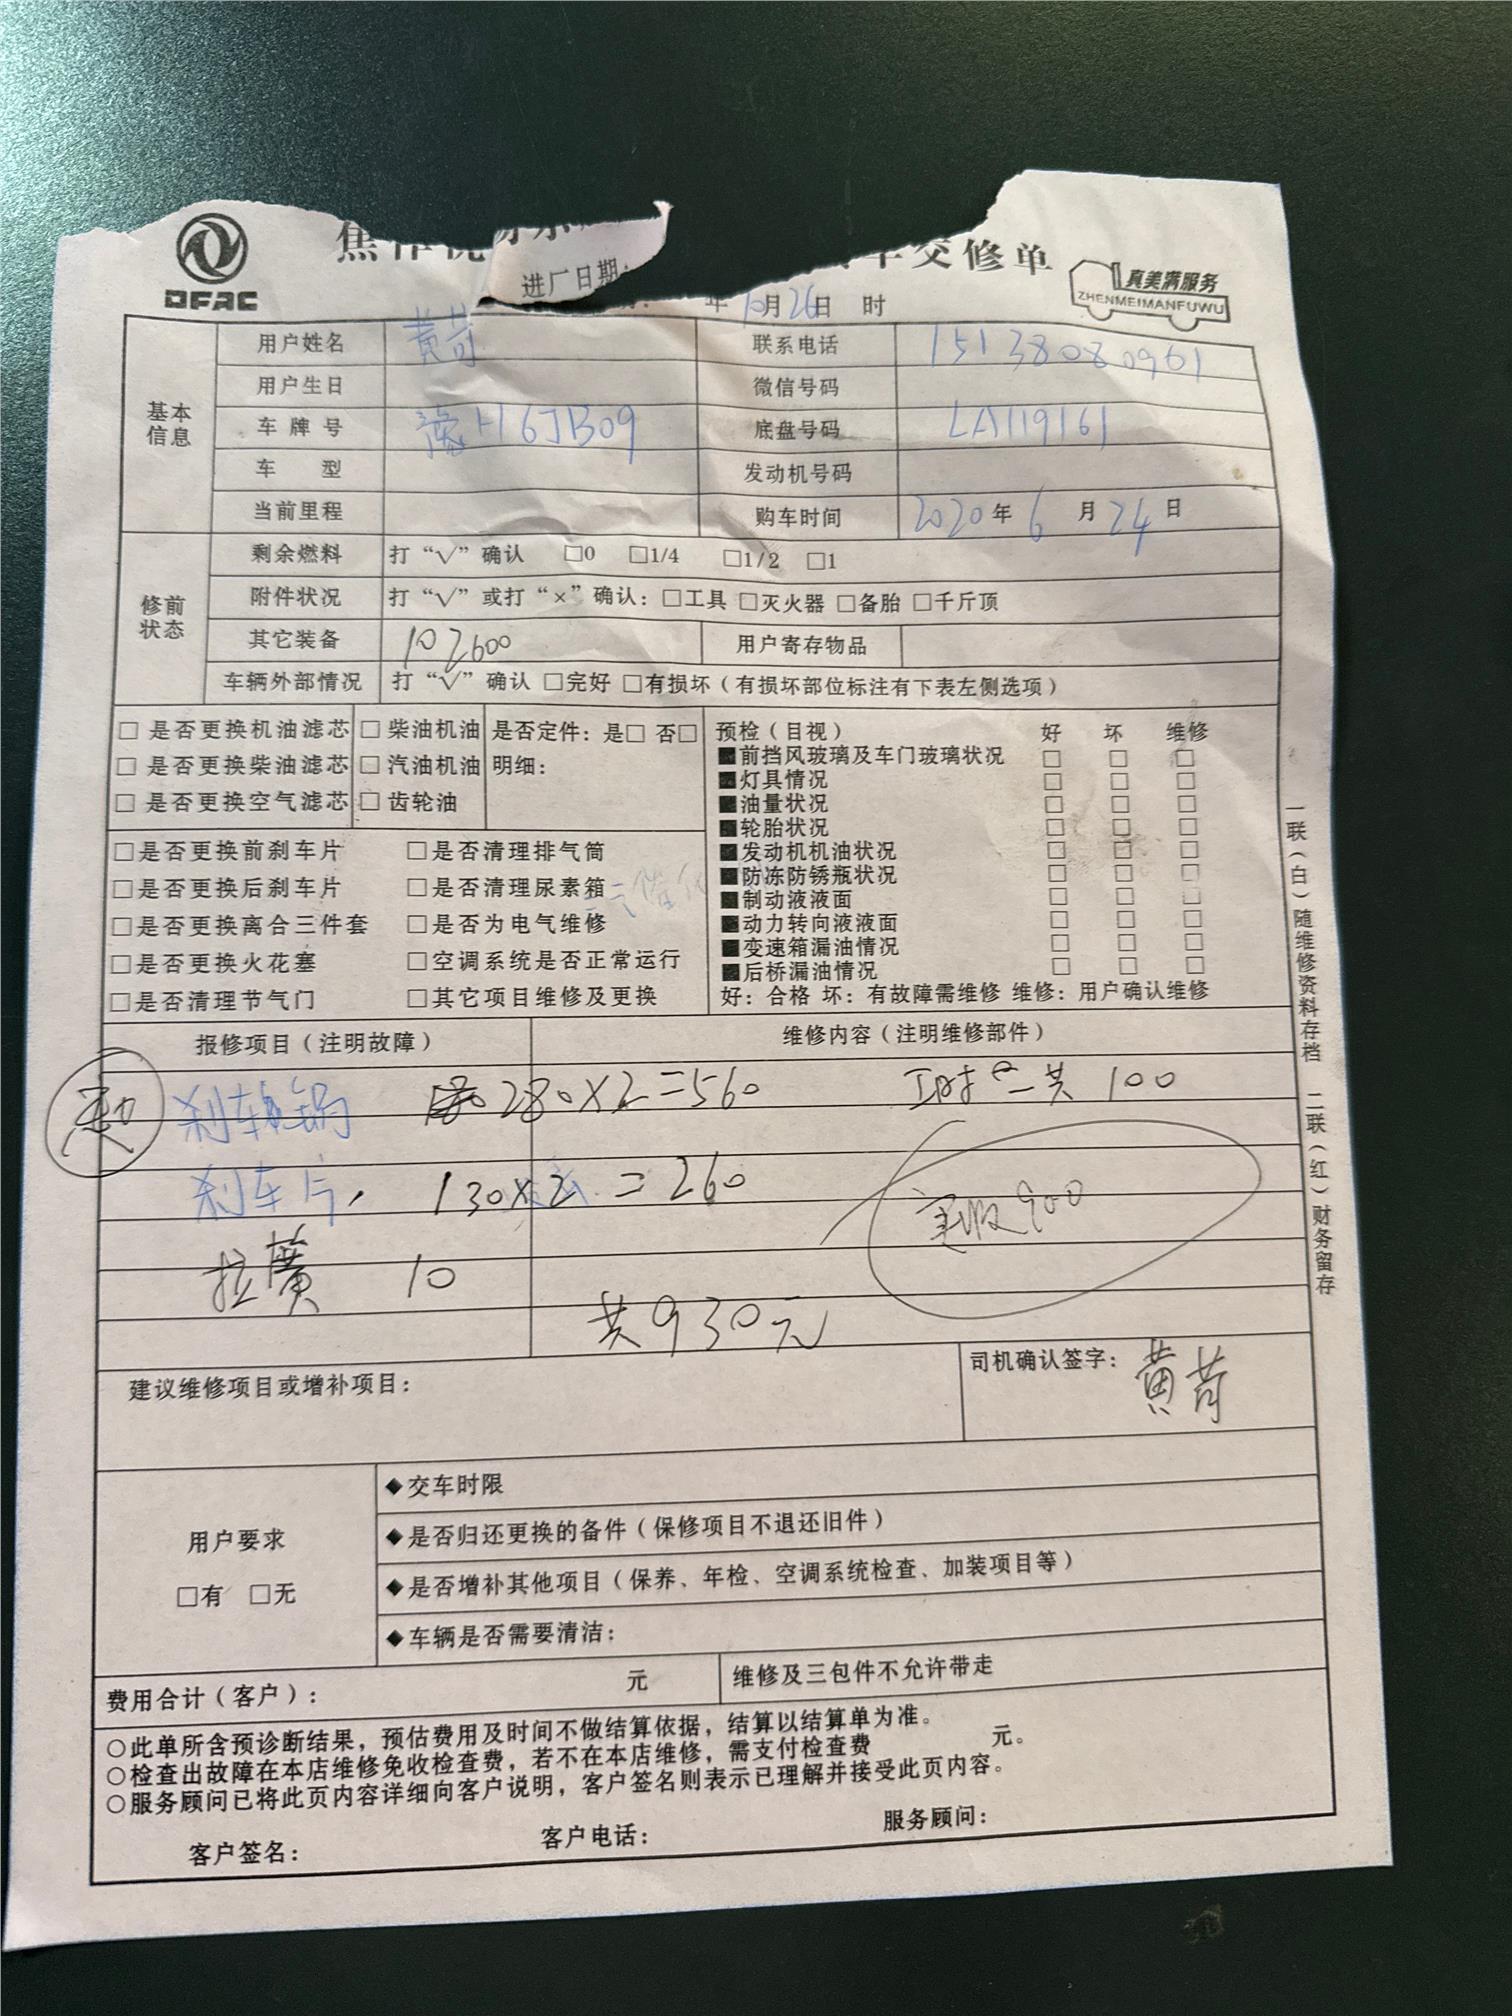 DFAC
焦作
交修单
真美满服务
ZHENMEIMANFUWU
进厂日期:
年10月26日 时
基本信息
用户姓名 黄苛 联系电话 15138080961
用户生日 微信号码
车牌号 豫H6JB09 底盘号码 LA119161
车 型 发动机号码
当前里程 购车时间 2020年6月24日
修前状态
剩余燃料 打“√”确认 □0 □1/4 □1/2 □1
附件状况 打“√”或打“×”确认:□工具 □灭火器 □备胎 □千斤顶
其它装备 102600 用户寄存物品
车辆外部情况 打“√”确认 □完好 □有损坏(有损坏部位标注有下表左侧选项)
□ 是否更换机油滤芯 □ 柴油机油 是否定件: 是□ 否□
□ 是否更换柴油滤芯 □ 汽油机油 明细:
□ 是否更换空气滤芯 □ 齿轮油
□是否更换前刹车片 □是否清理排气筒
□是否更换后刹车片 □是否清理尿素箱
□是否更换离合三件套 □是否为电气维修
□是否更换火花塞 □空调系统是否正常运行
□是否清理节气门 □其它项目维修及更换
预检(目视) 好 坏 维修
■前挡风玻璃及车门玻璃状况 □ □ □
■灯具情况 □ □ □
■油量状况 □ □ □
■轮胎状况 □ □ □
■发动机机油状况 □ □ □
■防冻防锈瓶状况 □ □ □
■制动液液面 □ □ □
■动力转向液液面 □ □ □
■变速箱漏油情况 □ □ □
■后桥漏油情况 □ □ □
好:合格 坏:有故障需维修 维修:用户确认维修
报修项目(注明故障) 维修内容(注明维修部件)
刹车锅 280×2=560 工时 一共 100
刹车片, 130×2=260
实收900
拉簧 10
共930元
建议维修项目或增补项目:
司机确认签字: 黄苛
用户要求
□有 □无
◆交车时限
◆是否归还更换的备件(保修项目不退还旧件)
◆是否增补其他项目(保养、年检、空调系统检查、加装项目等)
◆车辆是否需要清洁:
费用合计(客户): 元 维修及三包件不允许带走
○此单所含预诊断结果,预估费用及时间不做结算依据,结算以结算单为准。
○检查出故障在本店维修免收检查费,若不在本店维修,需支付检查费 元。
○服务顾问已将此页内容详细向客户说明,客户签名则表示已理解并接受此页内容。
客户签名: 客户电话: 服务顾问:
一联(白)随维修资料存档 二联(红)财务留存